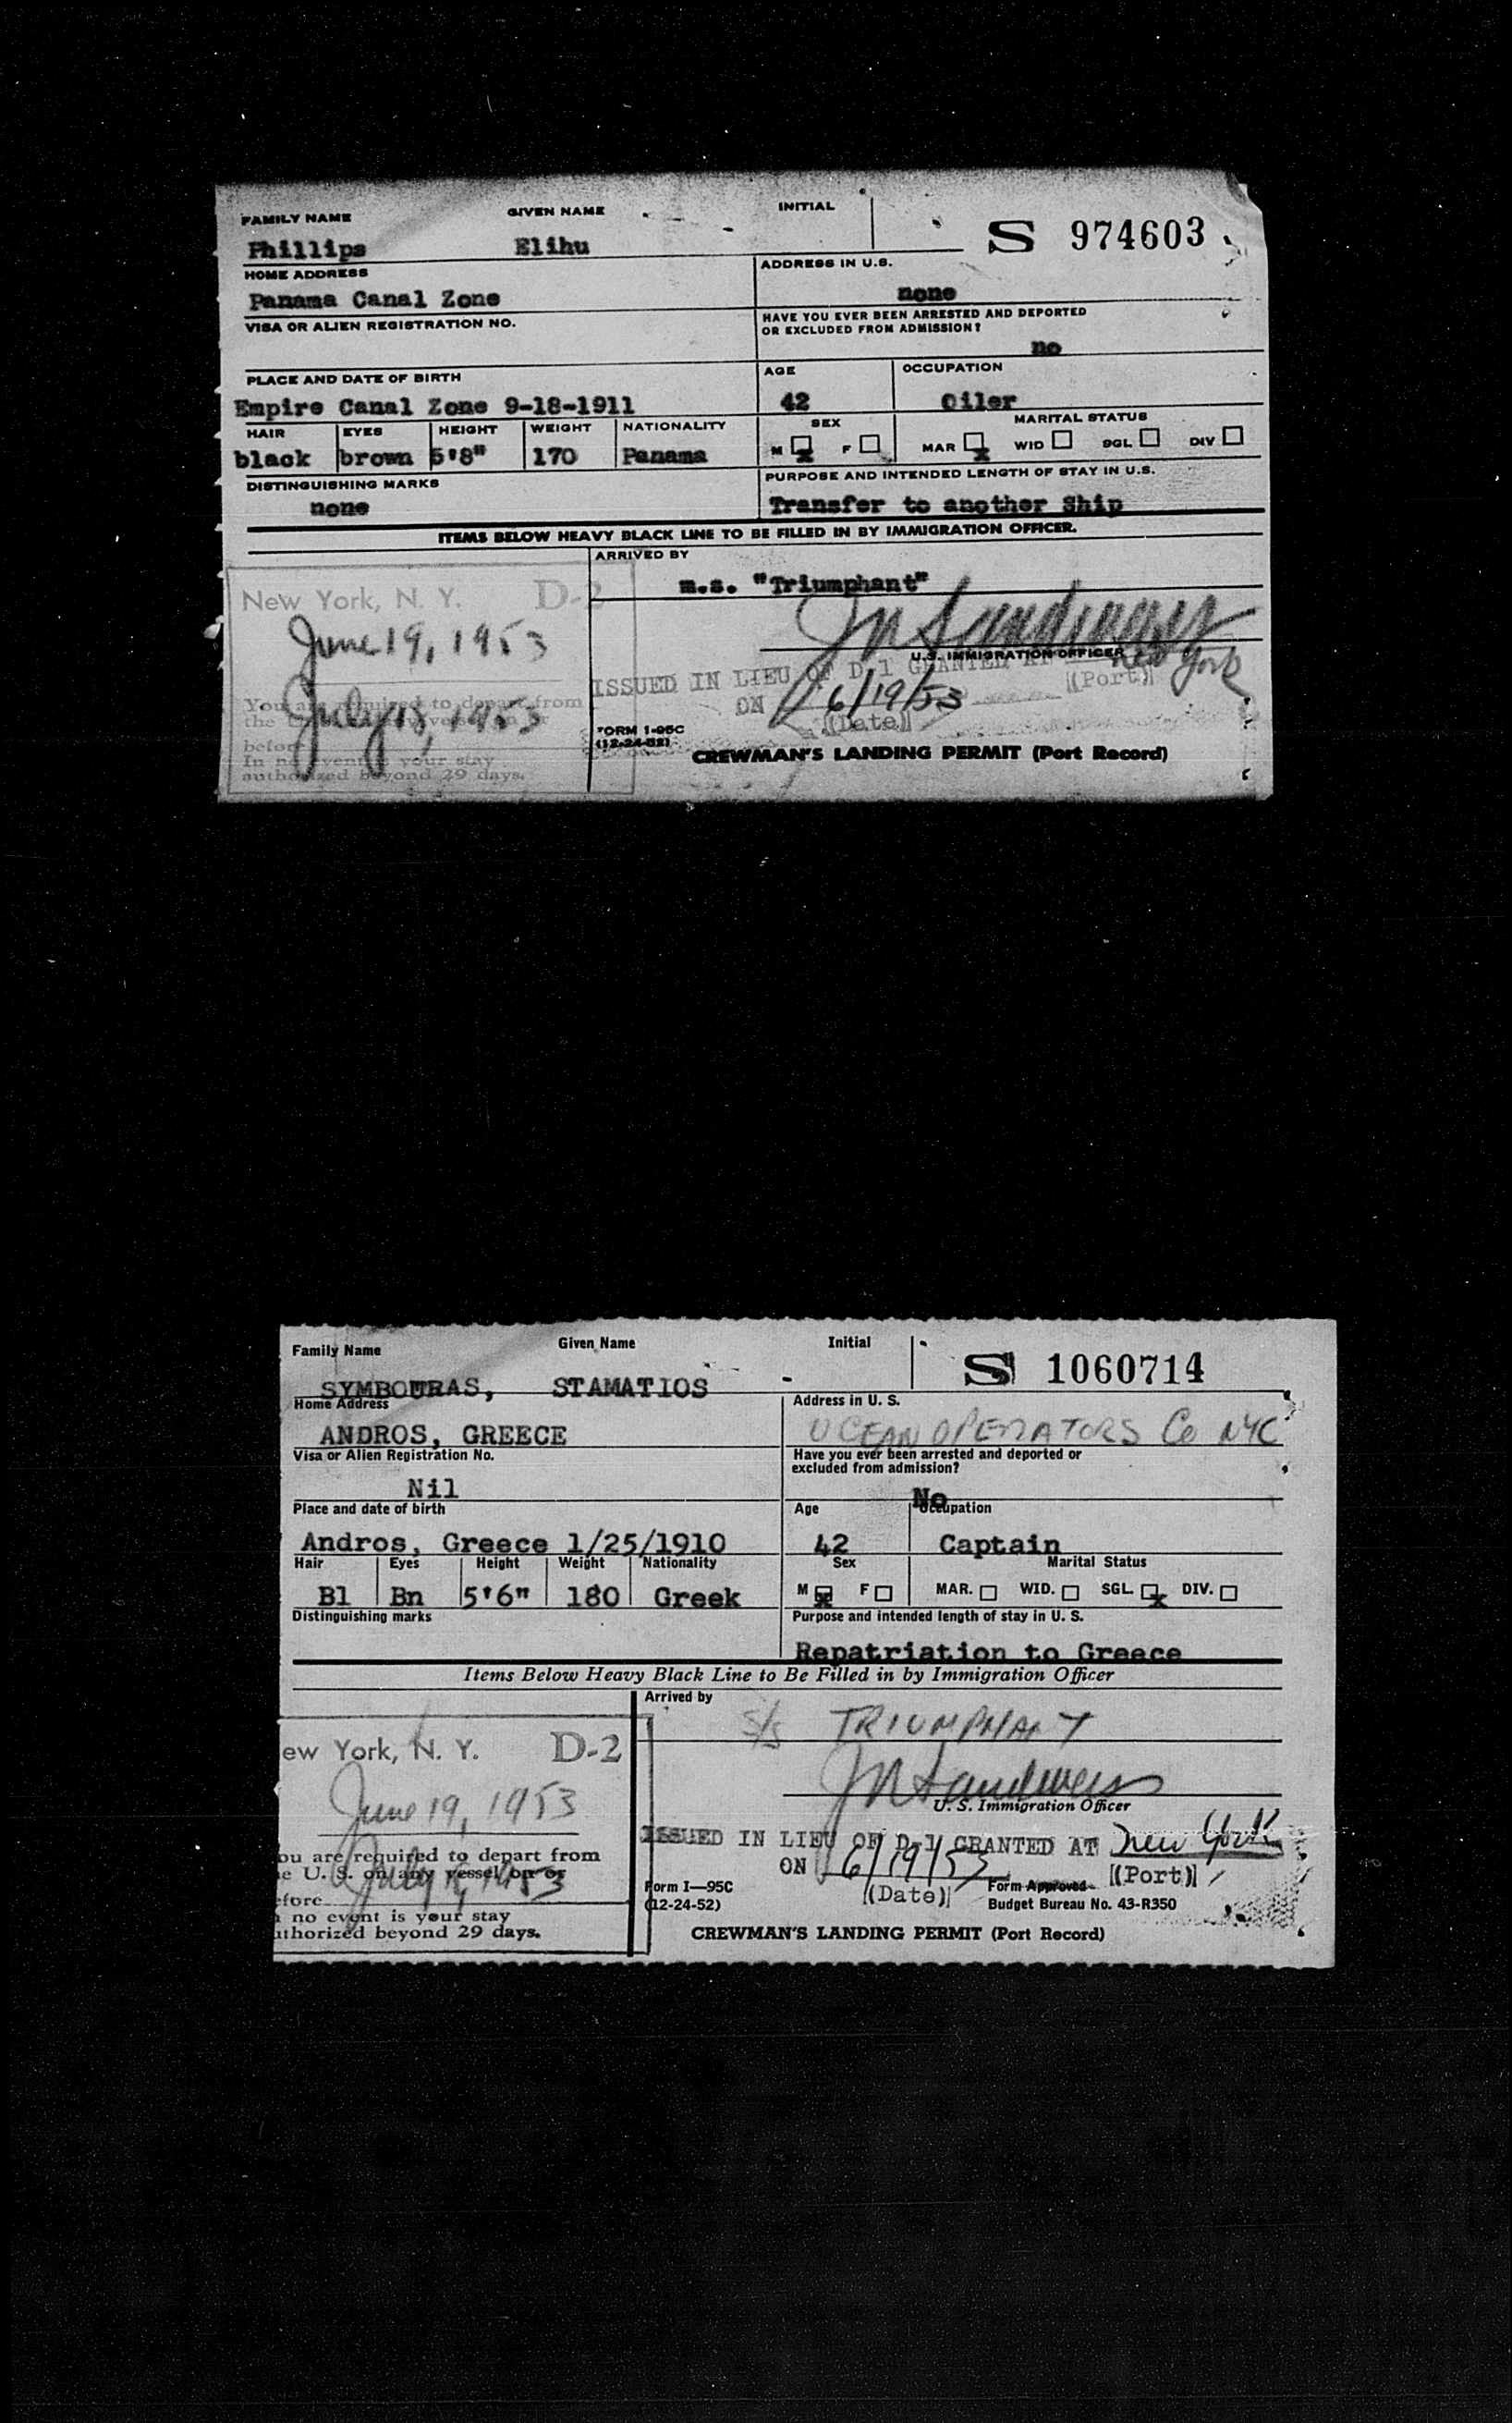 FAMILY NAME GIVEN NAME INITIAL
S 974603
Phillips Elihu
HOME ADDRESS ADDRESS IN U.S.
Panama Canal Zone none
VISA OR ALIEN REGISTRATION NO. HAVE YOU EVER BEEN ARRESTED AND DEPORTED
OR EXCLUDED FROM ADMISSION?
no
PLACE AND DATE OF BIRTH AGE OCCUPATION
Empire Canal Zone 9-18-1911 42 Oiler
HAIR EYES HEIGHT WEIGHT NATIONALITY SEX MARITAL STATUS
black brown 5'8" 170 Panama M x F MAR x WID SGL DIV
DISTINGUISHING MARKS PURPOSE AND INTENDED LENGTH OF STAY IN U.S.
none Transfer to another Ship
ITEMS BELOW HEAVY BLACK LINE TO BE FILLED IN BY IMMIGRATION OFFICER.
ARRIVED BY
m.s. "Triumphant"
New York, N. Y. D-2
June 19, 1953
U.S. IMMIGRATION OFFICER
ISSUED IN LIEU OF D-1 GRANTED AT New York
(Port)
ON 6/19/53
(Date)
You are required to depart from
the
before
July 18, 1953
In no event is your stay
authorized beyond 29 days.
FORM I-95C
(12-24-52)
CREWMAN'S LANDING PERMIT (Port Record)
Family Name Given Name Initial
S 1060714
SYMBOURAS, STAMATIOS
Home Address Address in U. S.
ANDROS, GREECE OCEAN OPERATORS Co NYC
Visa or Alien Registration No. Have you ever been arrested and deported or
excluded from admission?
Nil No
Place and date of birth Age Occupation
Andros, Greece 1/25/1910 42 Captain
Hair Eyes Height Weight Nationality Sex Marital Status
Bl Bn 5'6" 180 Greek M x F MAR. WID. SGL. x DIV.
Distinguishing marks Purpose and intended length of stay in U. S.
Repatriation to Greece
Items Below Heavy Black Line to Be Filled in by Immigration Officer
Arrived by
S/S TRIUMPHANT
ew York, N. Y. D-2
June 19, 1953
J M Sandweiss
U. S. Immigration Officer
ISSUED IN LIEU OF D-1 GRANTED AT New York
(Port)
ON 6/19/53
(Date)
ou are required to depart from
e U. S. on any vessel on or
efore
July 1953
no event is your stay
uthorized beyond 29 days.
Form I—95C
(12-24-52)
Form Approved
Budget Bureau No. 43-R350
CREWMAN'S LANDING PERMIT (Port Record)